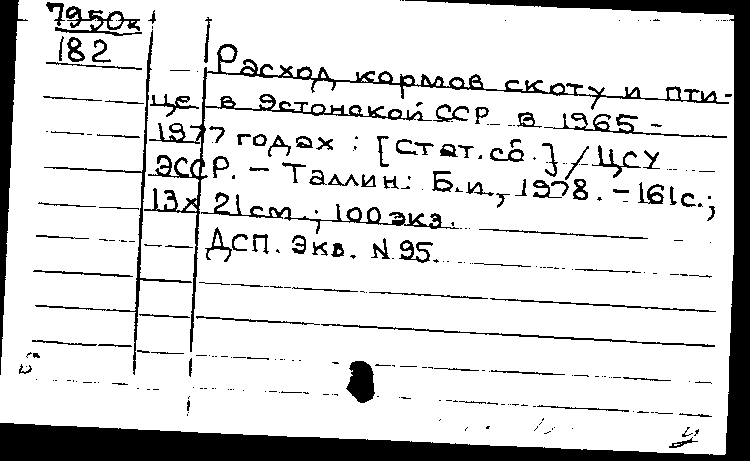 7950к
182
Расход кормов скоту и пти-
це в Эстонской ССР в 1965-
1977 годах : [Стат. сб.] / ЦСУ
ЭССР. - Таллин: Б.и., 1978. - 161с.;
13х21см.; 100экз.
ДСП. Экв. N 95.
у